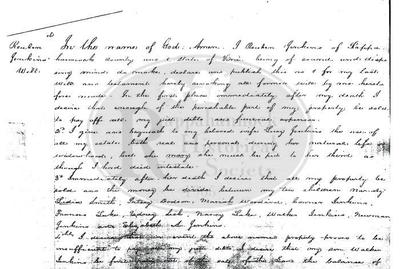 Reuben
Jenkins'
Will.
In the name of God. Amen. I Reuben Jenkins of Rappa-
hannock County and State of Virg. being of sound and dispo
sing mind, do make, declare and publish this as & for my last
will and testament hereby revoking all former wills by me hereto
fore made. In the first place immediately after my death I
desire that enough of the perishable part of my property be sold
to pay off all my just debts and funeral expenses.
2nd I give and bequeath to my beloved wife Lucy Jenkins the use of
all my estate both real and personal during her natural life
widowhood, but she marry she must be put to her thirds as
though I had died intestate.
3rd Immediately after her death I desire that all my property be
sold and the money be divided between my ten children namely
Smith, Dodson, Mariah Woodard, Jenkins,
Frances Lake, Sidney Nancy Lake, Walker Jenkins, Newman
Jenkins and Elizabeth A. Jenkins.
4th I desire that should the above named property prove to be
insufficient to pay my just debts I desire that my son Walker
Jenkins the balance of